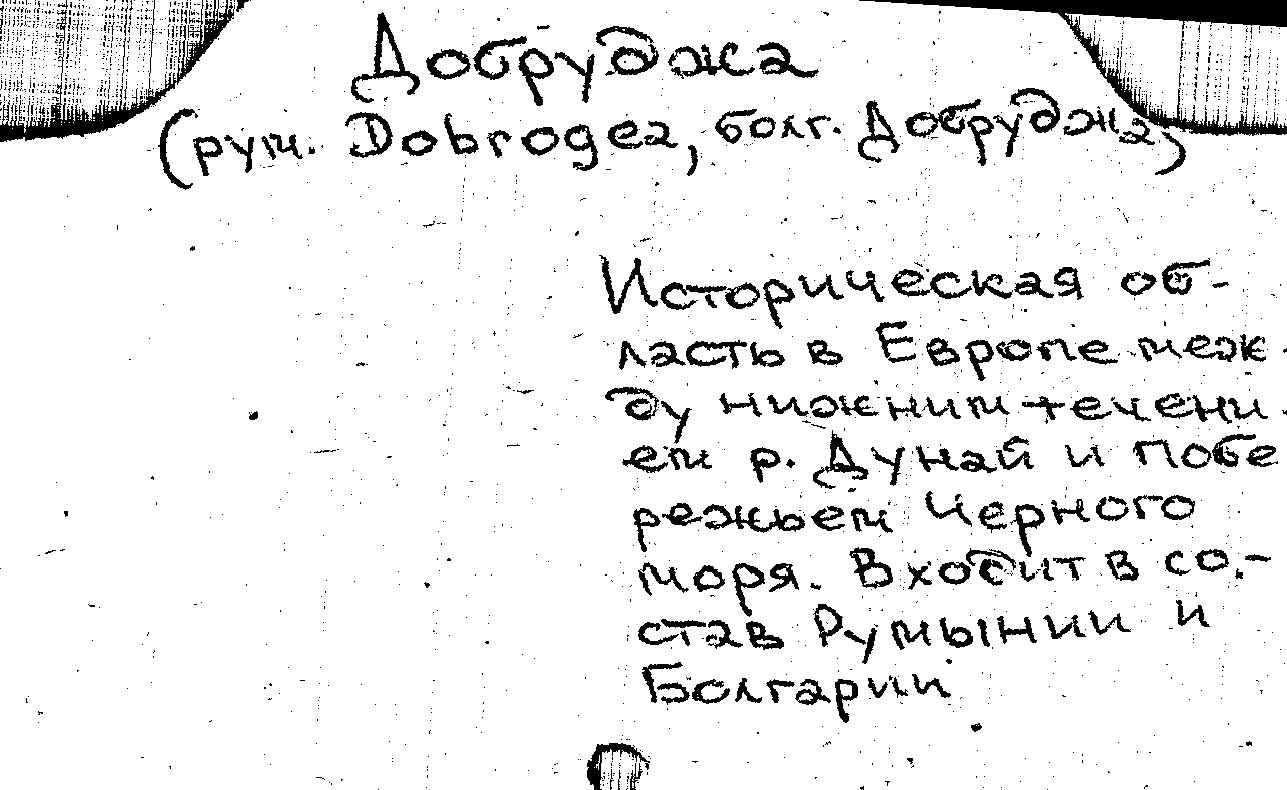 Добруджа
(рум. Dobrogea, болг. Добруджа)
Историческая об-
ласть в Европе меж-
ду нижним течени-
ем р. Дунай и побе
режьем Черного
моря. Входит в со-
став Румынии и
Болгарии